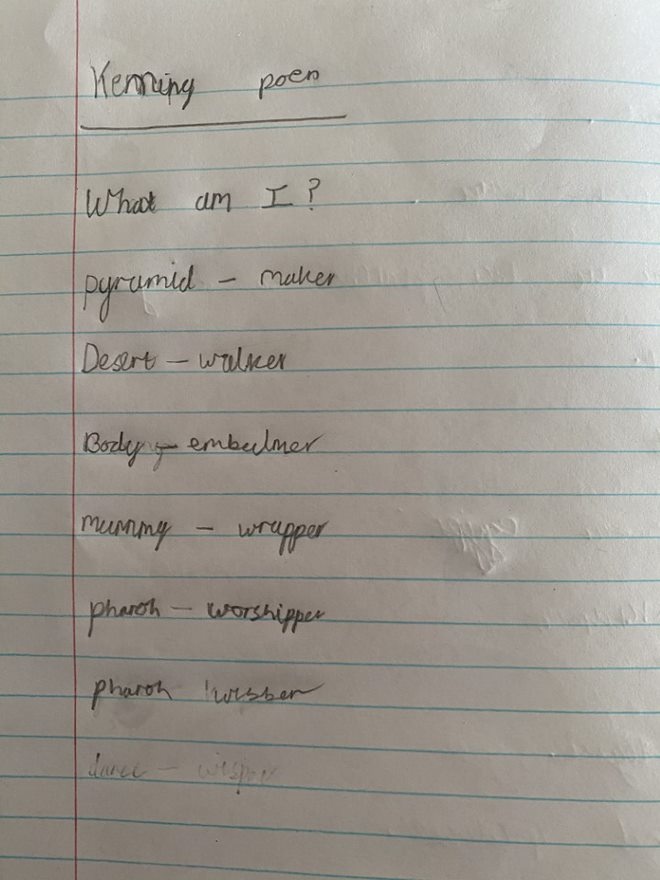 Kenning poem
What am I?
pyramid - maker
Desert - walker
Body - embalmer
mummy - wrapper
pharoh - worshipper
pharoh